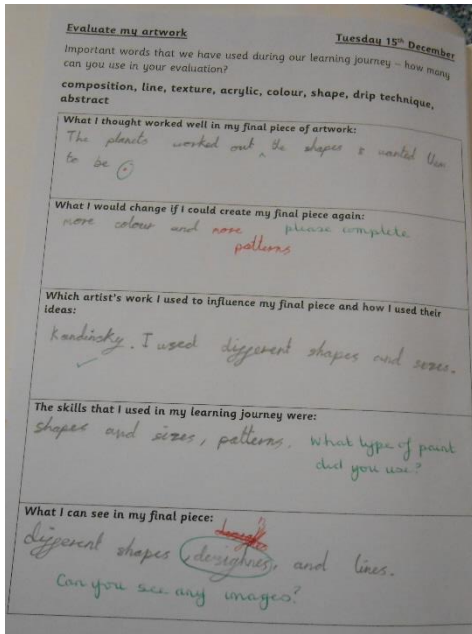 Evaluate my artwork
Tuesday 15th December
Important words that we have used during our learning journey – how many
can you use in your evaluation?
composition, line, texture, acrylic, colour, shape, drip technique,
abstract
What I thought worked well in my final piece of artwork:
The planets worked out ^ the shapes I wanted them
to be .
What I would change if I could create my final piece again:
more colour and more please complete
patterns
Which artist's work I used to influence my final piece and how I used their
ideas:
Kandinsky. I used different shapes and sizes.
The skills that I used in my learning journey were:
shapes and sizes, patterns. What type of paint
did you use?
What I can see in my final piece:
different shapes, desighnes, and lines.
Can you see any images?